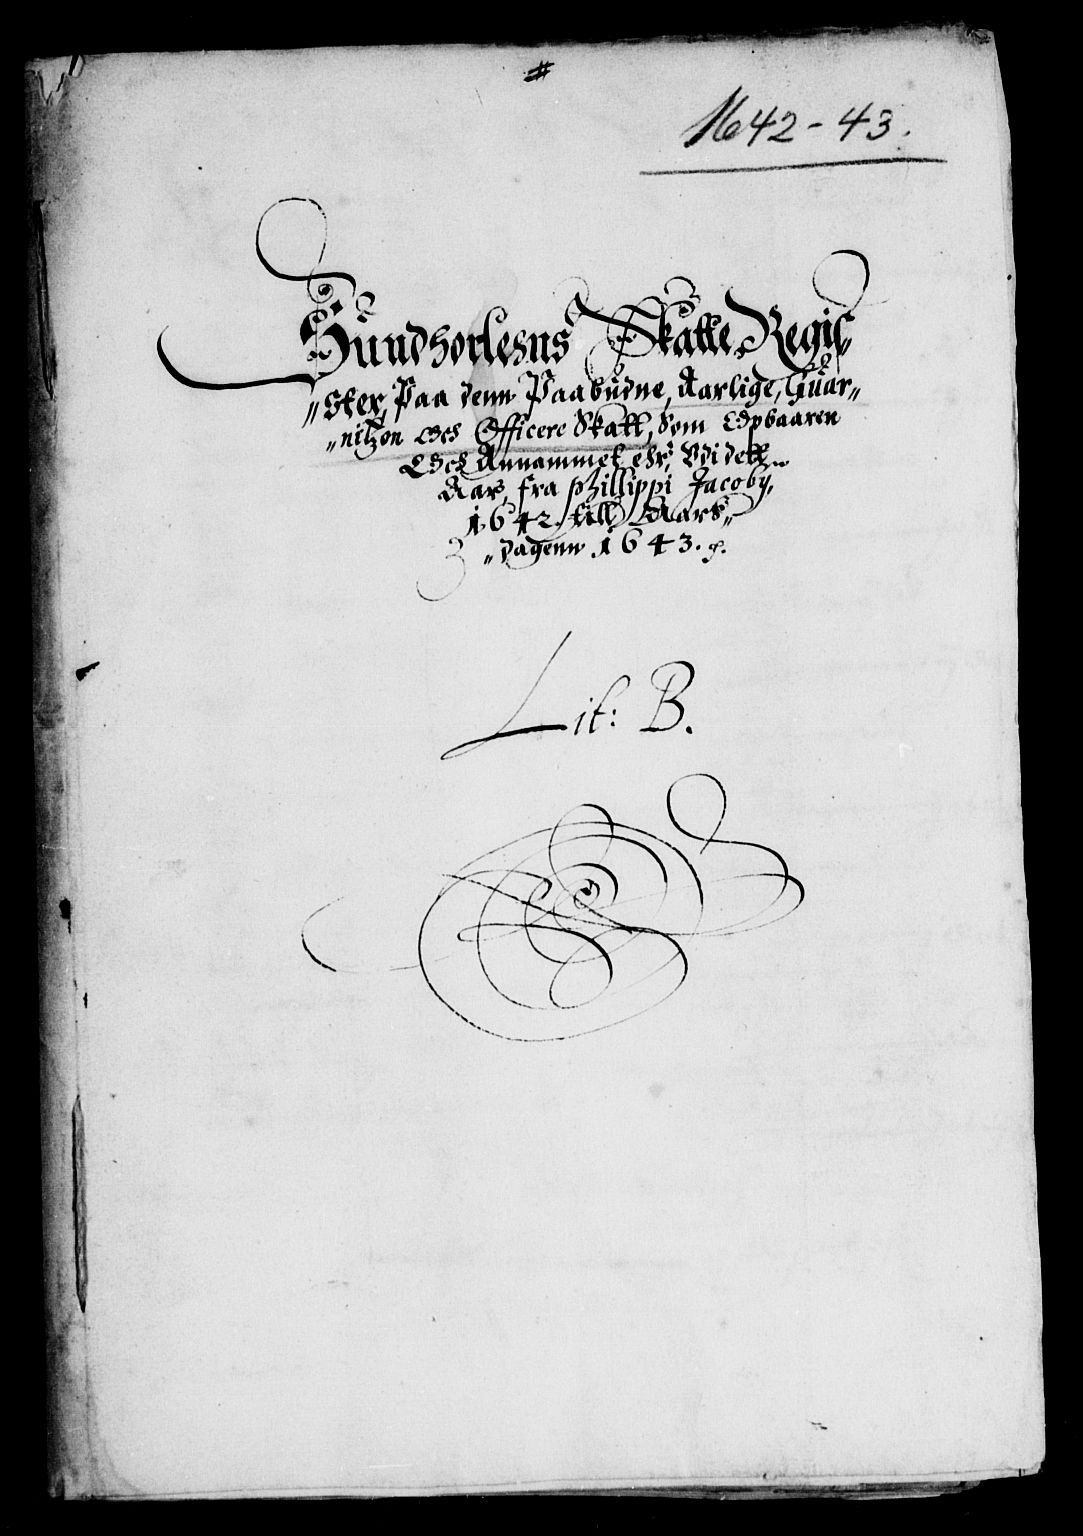 #
1642-43.
Sundhorlehns Skatte Regis„
„ster, Paa denn Paabudne, Aarlige, Guar„
„nitzon och Officere Skatt, Som Opbaaren
Och Annammet ehr, Udi dett
Aar, fra Phillippi Jacoby,
1642. till Aars„
„dagenn 1643. p.
Lit: B.